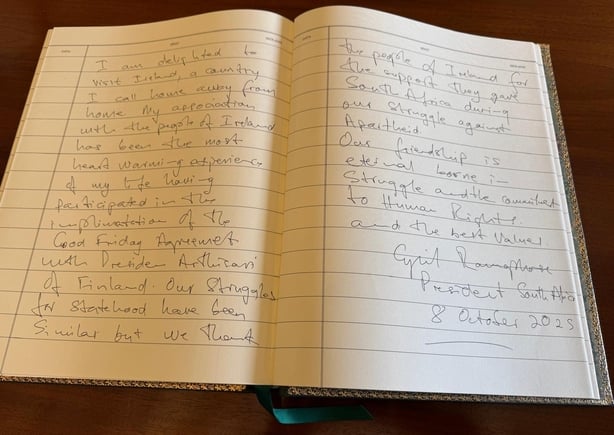 I am delighted to
visit Ireland, a country
I call home away from
home. My association
with the people of Ireland
has been the most
heart warming experience
of my life having
participated in the
implimatation of the
Good Friday Agreement
with President Arthisari
of Finland. Our struggles
for statehood have been
similar but we thank
the people of Ireland for
the support they gave
South Africa during
our struggle against
Apartheid.
Our friendship is
eternal borne in
struggle and the commitment
to Human Rights.
and the best values.
Cyril Ramaphosa
President South Africa
8 October 2025